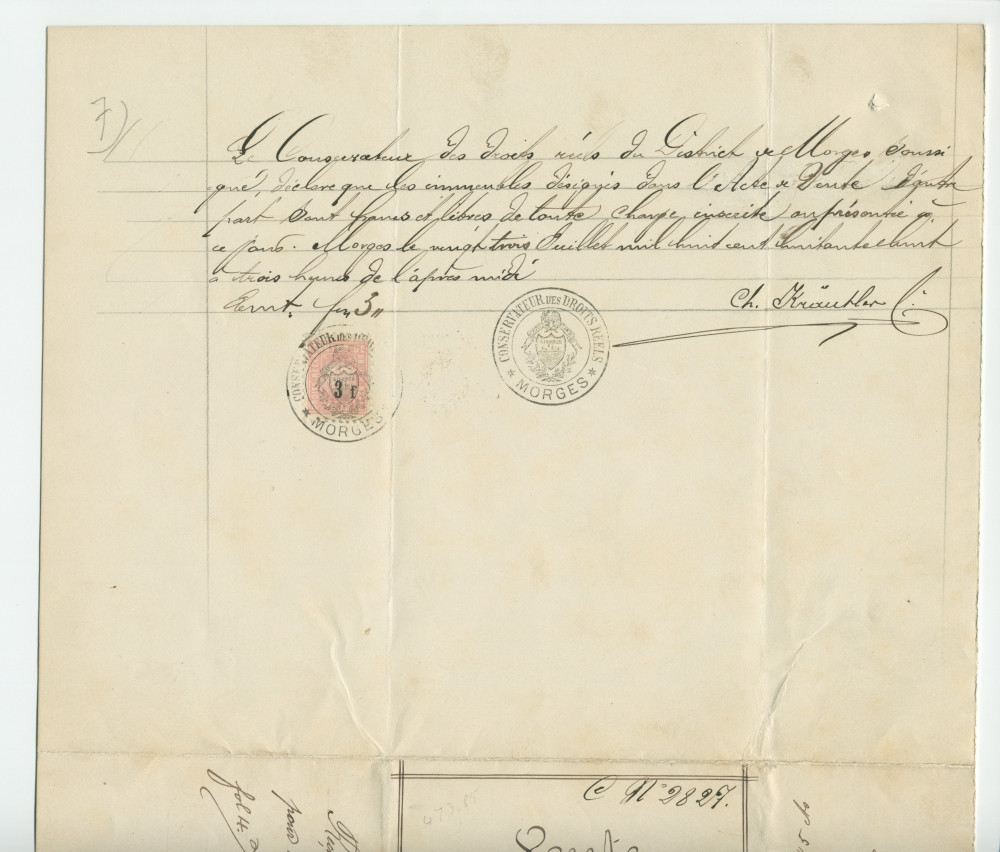 7)
Le Conservateur des droits réels du District de Morges soussi
gné, déclare que les immeubles désignés dans l'Acte de Vente d'autre
part sont francs et libres de toute charge inscrite ou présentée
ce jour. Morges le vingt trois Juillet mil huit cent huitante et huit
à trois heures de l'après midi
Emt. fr 3 "
Ch. Kräutler C.
CONSERVATEUR DES DROITS RÉELS
★ MORGES ★
3 f
CONSERVATEUR DES DROITS RÉELS
★ MORGES ★
C N° 2827.
473.85
fol 4.
pour